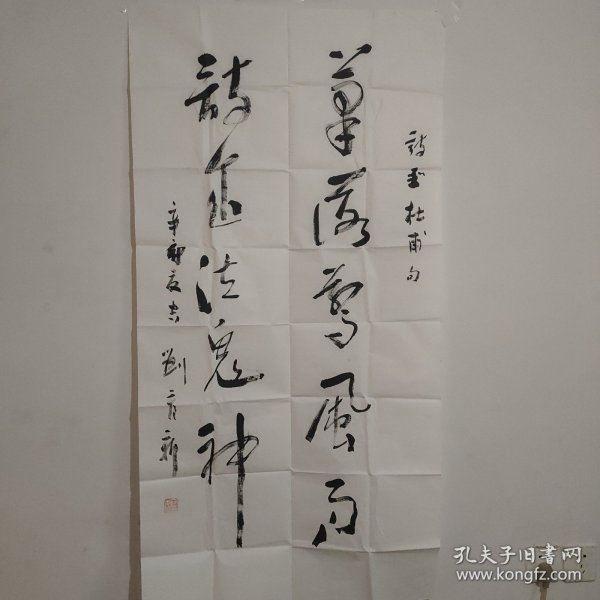 詩圣杜甫句
筆落驚風雨
詩成泣鬼神
辛卯夏 劉育新
孔夫子旧书网
www.kongfz.com